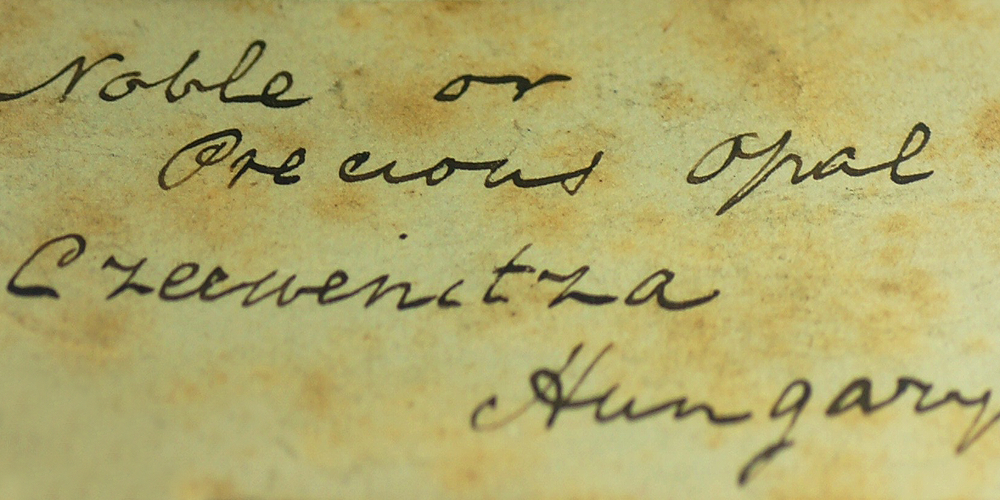 Noble or
Precious Opal
Czerwenitza
Hungary